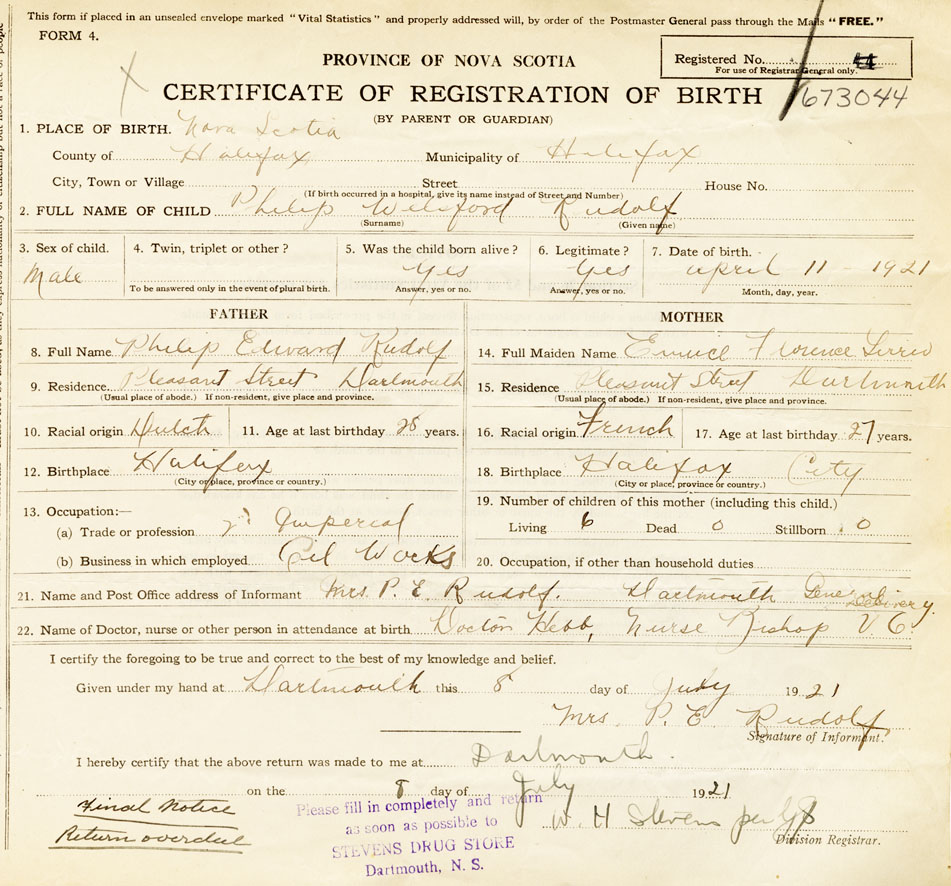 This form if placed in an unsealed envelope marked "Vital Statistics" and properly addressed will, by order of the Postmaster General pass through the Mails "FREE."
FORM 4.
PROVINCE OF NOVA SCOTIA
Registered No. 44
For use of Registrar General only.
CERTIFICATE OF REGISTRATION OF BIRTH
673044
(BY PARENT OR GUARDIAN)
1. PLACE OF BIRTH. Nova Scotia
County of Halifax Municipality of Halifax
City, Town or Village Street House No.
(If birth occurred in a hospital, give its name instead of Street and Number)
2. FULL NAME OF CHILD Philip Welsford Rudolf
(Surname) (Given name)
3. Sex of child. 4. Twin, triplet or other? 5. Was the child born alive? 6. Legitimate? 7. Date of birth.
Male Yes Yes april 11 - 1921
To be answered only in the event of plural birth. Answer, yes or no. Answer, yes or no. Month, day, year.
FATHER
8. Full Name Philip Edward Rudolf
9. Residence Pleasant Street Dartmouth
(Usual place of abode.) If non-resident, give place and province.
10. Racial origin Dutch 11. Age at last birthday 28 years.
12. Birthplace Halifax
(City or place, province or country.)
13. Occupation:—
(a) Trade or profession Imperial
(b) Business in which employed Oil Works
MOTHER
14. Full Maiden Name Eunice Florence
15. Residence Pleasant Street Dartmouth
(Usual place of abode.) If non-resident, give place and province.
16. Racial origin French 17. Age at last birthday 27 years.
18. Birthplace Halifax City
(City or place, province or country.)
19. Number of children of this mother (including this child.)
Living 6 Dead 0 Stillborn 0
20. Occupation, if other than household duties
21. Name and Post Office address of Informant Mrs. P. E. Rudolf. Dartmouth General Delivery.
22. Name of Doctor, nurse or other person in attendance at birth Doctor Hebb, Nurse Bishop V.
I certify the foregoing to be true and correct to the best of my knowledge and belief.
Given under my hand at Dartmouth this 8 day of July 1921
Mrs. P. E. Rudolf
Signature of Informant.
I hereby certify that the above return was made to me at Dartmouth.
on the 8 day of July 1921
W. H Stevens per
Division Registrar.
Final Notice
Return overdue
Please fill in completely and return
as soon as possible to
STEVENS DRUG STORE
Dartmouth, N. S.